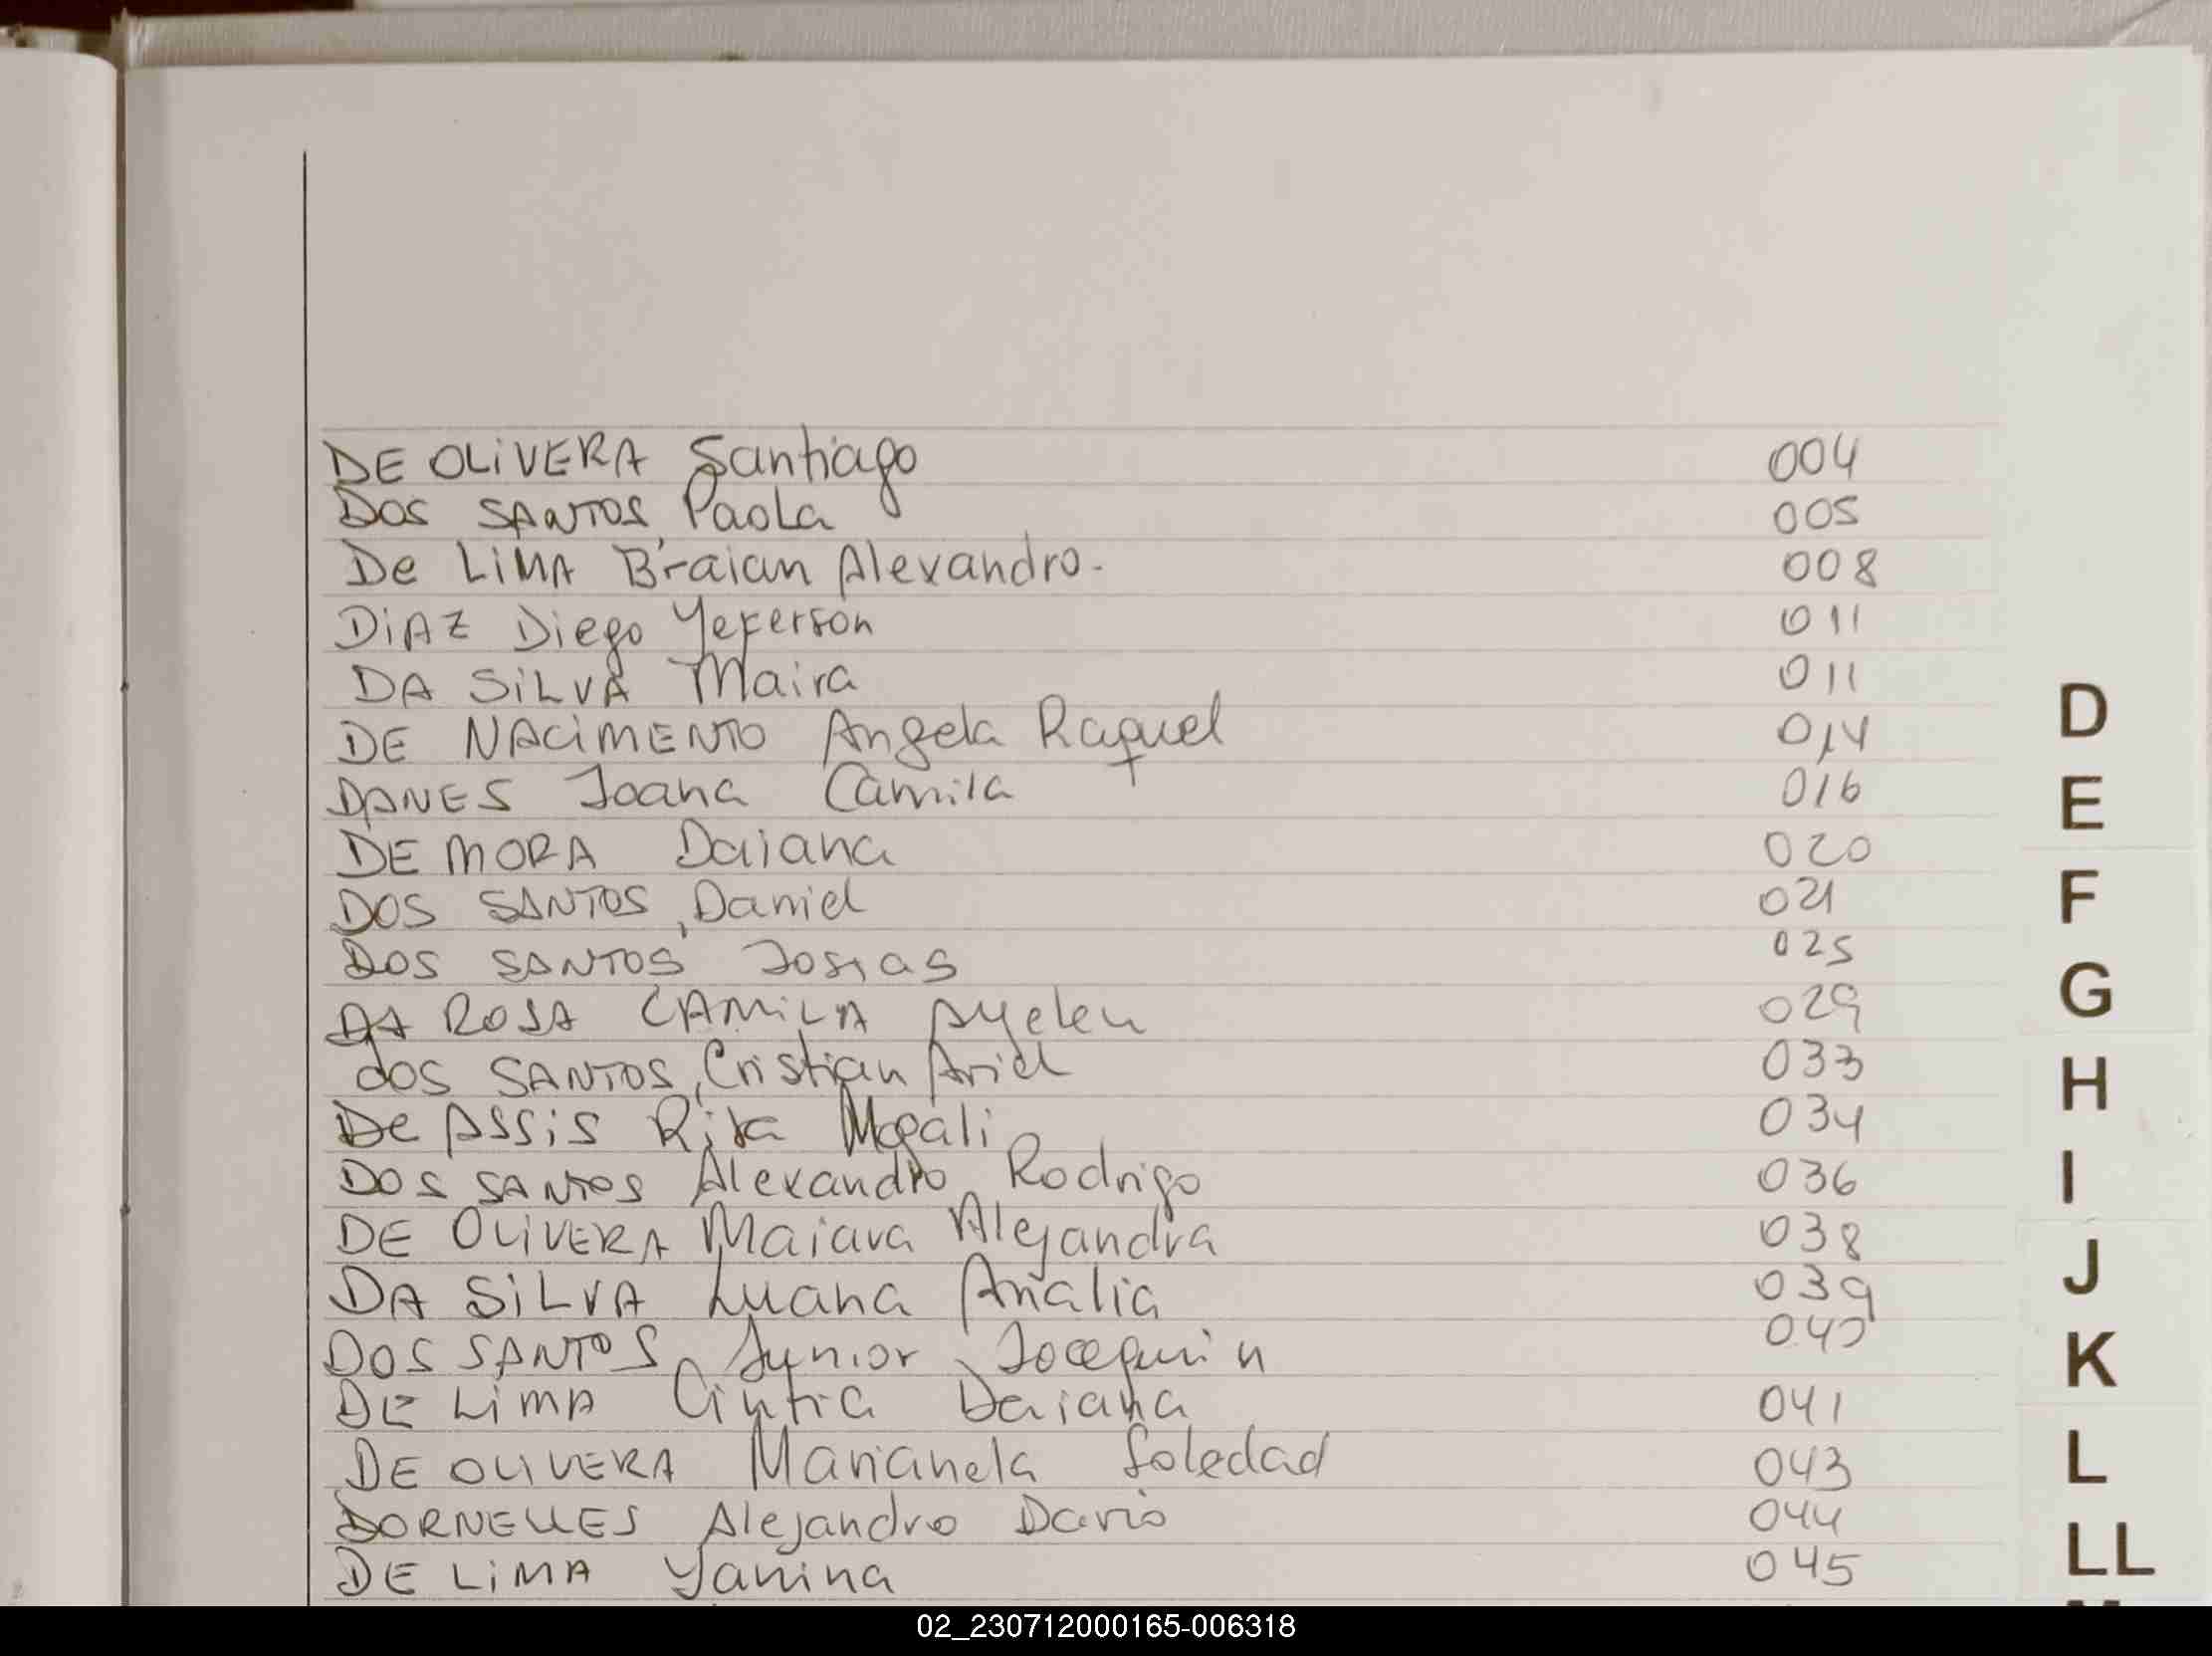 DE OLIVERA Santiago 004
DOS SANTOS, Paola 005
De LIMA Braian Alexandro. 008
DIAZ Diego Yeferson 011
DA SILVA Maira 011
DE NACIMENTO Angela Raquel 014
DANES Joana Camila 016
DE MORA Daiana 020
DOS SANTOS, Daniel 021
DOS SANTOS Josias 025
DA ROSA CAMILA Ayelen 029
dos SANTOS, Cristian Ariel 033
De Assis Rita Magali 034
DOS SANTOS Alexandro Rodrigo 036
DE OLIVERA Maiara Alejandra 038
DA SILVA Luana Analia 039
DOS SANTOS Junior Joaquin 040
DE LIMA Cintia Daiana 041
DE OLIVERA Marianela Soledad 043
DORNELLES Alejandro Dario 044
DE LIMA Yanina 045
D
E
F
G
H
I
J
K
L
LL
02_230712000165-006318